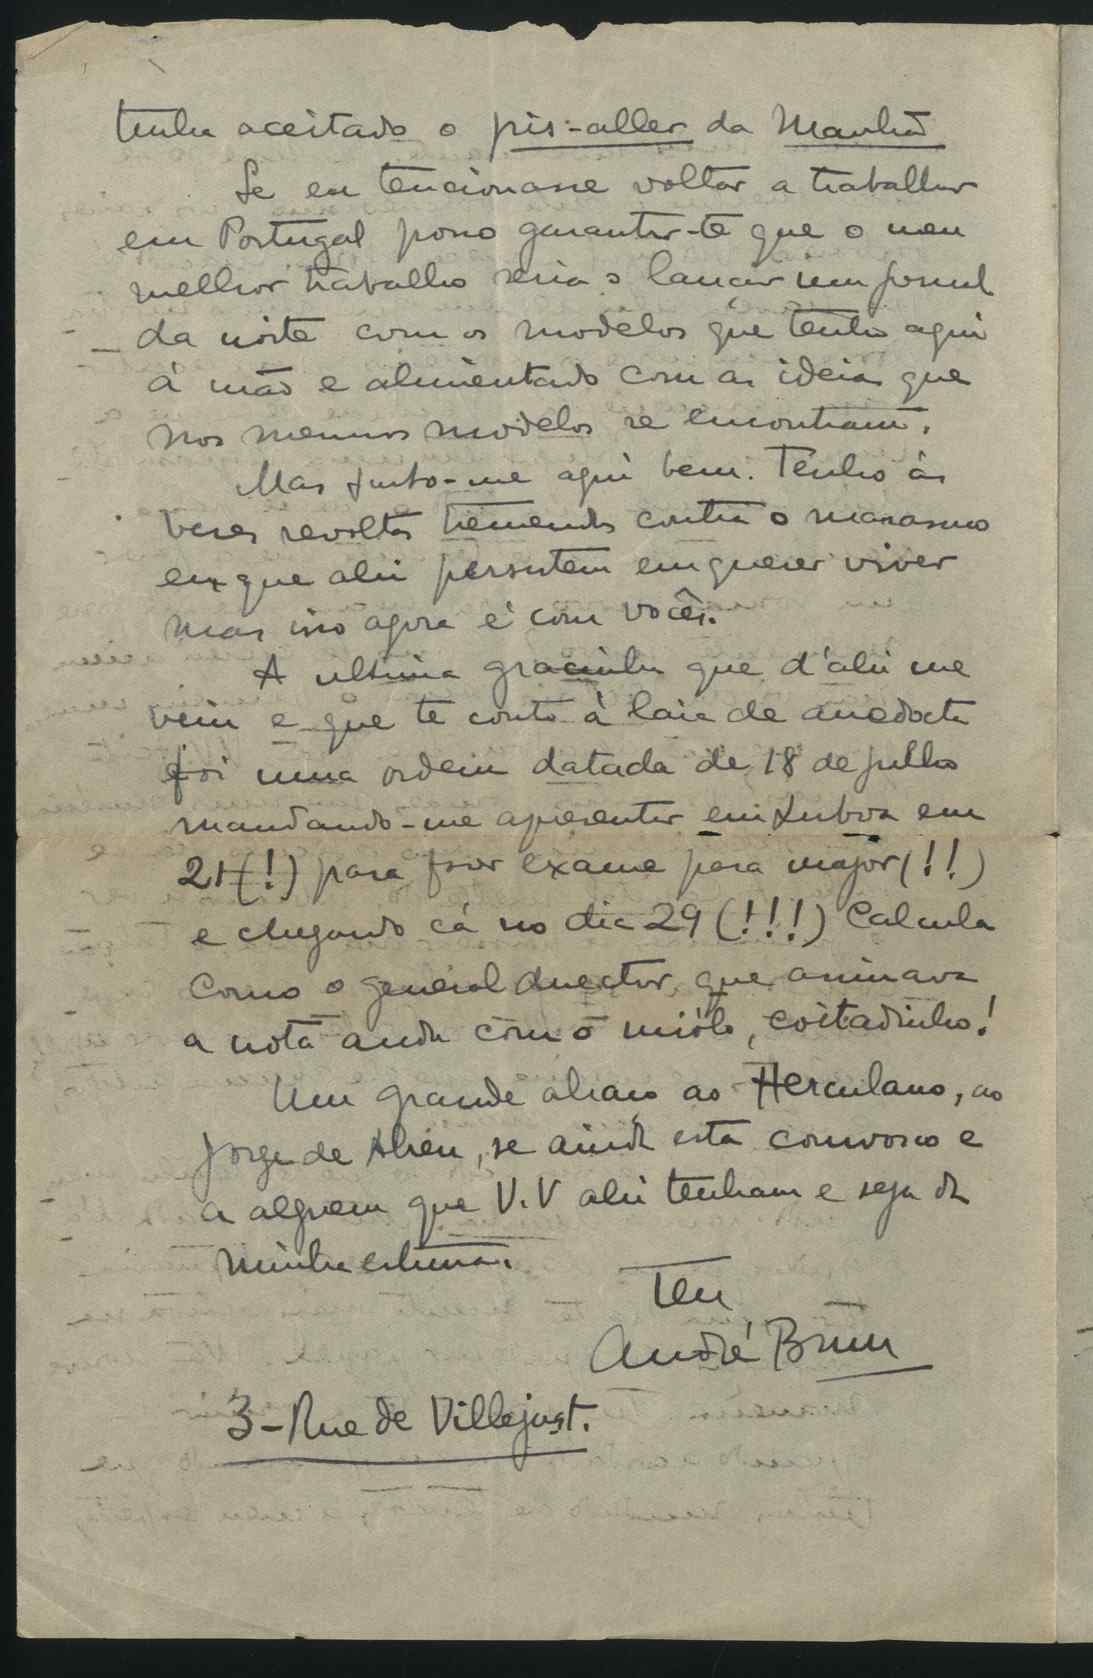 tenha aceitado o pis-aller da Manhã
Se eu tencionasse voltar a trabalhar
em Portugal posso garantir-te que o meu
melhor trabalho seria o lançar um jornal
da noite com os modelos que tenho aqui
á mão e alimentado com as ideias que
nos mesmos modelos se encontram.
Mas sinto-me aqui bem. Tenho ás
vezes revoltas tremendas contra o marasmo
em que ahi persistem em querer viver
mas isso agora é com vocês.
A ultima gracinha que d'ahi me
veiu e que te conto à laia de anedocta
foi uma ordem datada de 18 de julho
mandando-me apresentar em Lisboa em
21 (!) para fazer exame para major (!!)
e chegando cá no dia 29 (!!!) Calcula
como o general director, que assinava
a nota anda com o miôlo, coitadinho!
Um grande abraço ao Herculano, ao
Jorge de Abreu, se ainda está comvosco e
a alguem que V.V ahi tenham e seja da
minha estima.
Teu
André Brun
3-Rue de Villejust.